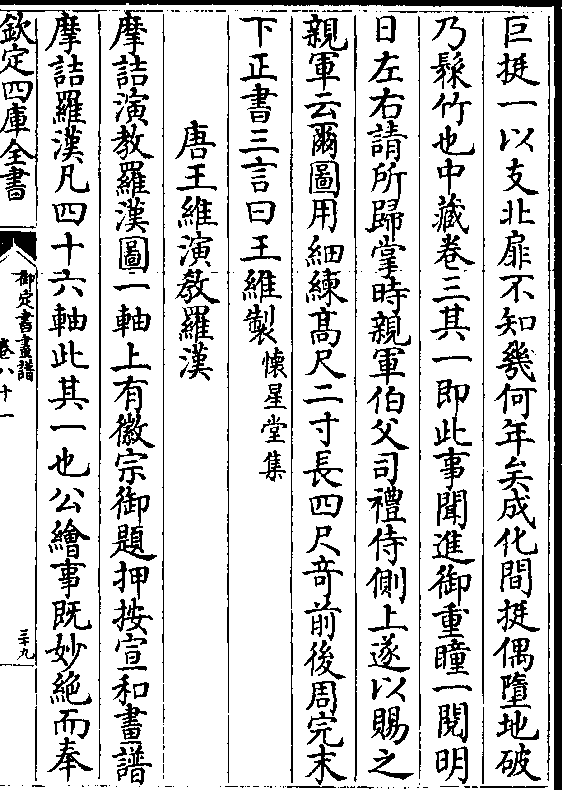 巨挺一以支北扉不知幾何年矣成化間挺偶墮地破
乃髹竹也中藏卷三其一即此事聞進御重瞳一閱明
日左右請所歸掌時親軍伯父司禮侍側上遂以賜之
親軍云爾圖用細練高尺二寸長四尺竒前後周完末
下正書三言曰王維製懷星堂集
唐王維演教羅漢
摩詰演教羅漢圖一軸上有徽宗御題押按宣和畫譜
摩詰羅漢凡四十六軸此其一也公繪事既妙絶而奉
欽定四庫全書
御定書畫譜
卷八十一
三十九